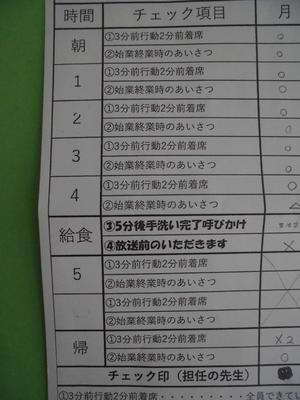 時間 チェック項目 月
朝 ①3分前行動2分前着席 ○
②始業終業時のあいさつ ○
1 ①3分前行動2分前着席 ○
②始業終業時のあいさつ ○
2 ①3分前行動2分前着席 ○
②始業終業時のあいさつ ○
3 ①3分前行動2分前着席 ○
②始業終業時のあいさつ ○
4 ①3分前行動2分前着席 ○
②始業終業時のあいさつ △
給食 ③5分後手洗い完了呼びかけ
④放送前のいただきます ×
5 ①3分前行動2分前着席
②始業終業時のあいさつ
①3分前行動2分前着席
②始業終業時のあいさつ
帰 ①3分前行動2分前着席 ×2
②始業終業時のあいさつ ○
チェック印（担任の先生）
①3分前行動2分前着席・・・・・・・・・全員できてい